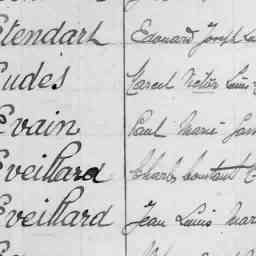 Etendart Edouard Joseph
Eudes Marcel Victor Louis
Evain Paul Marie
Eveillard Charles Constant
Eveillard Jean Louis Mar